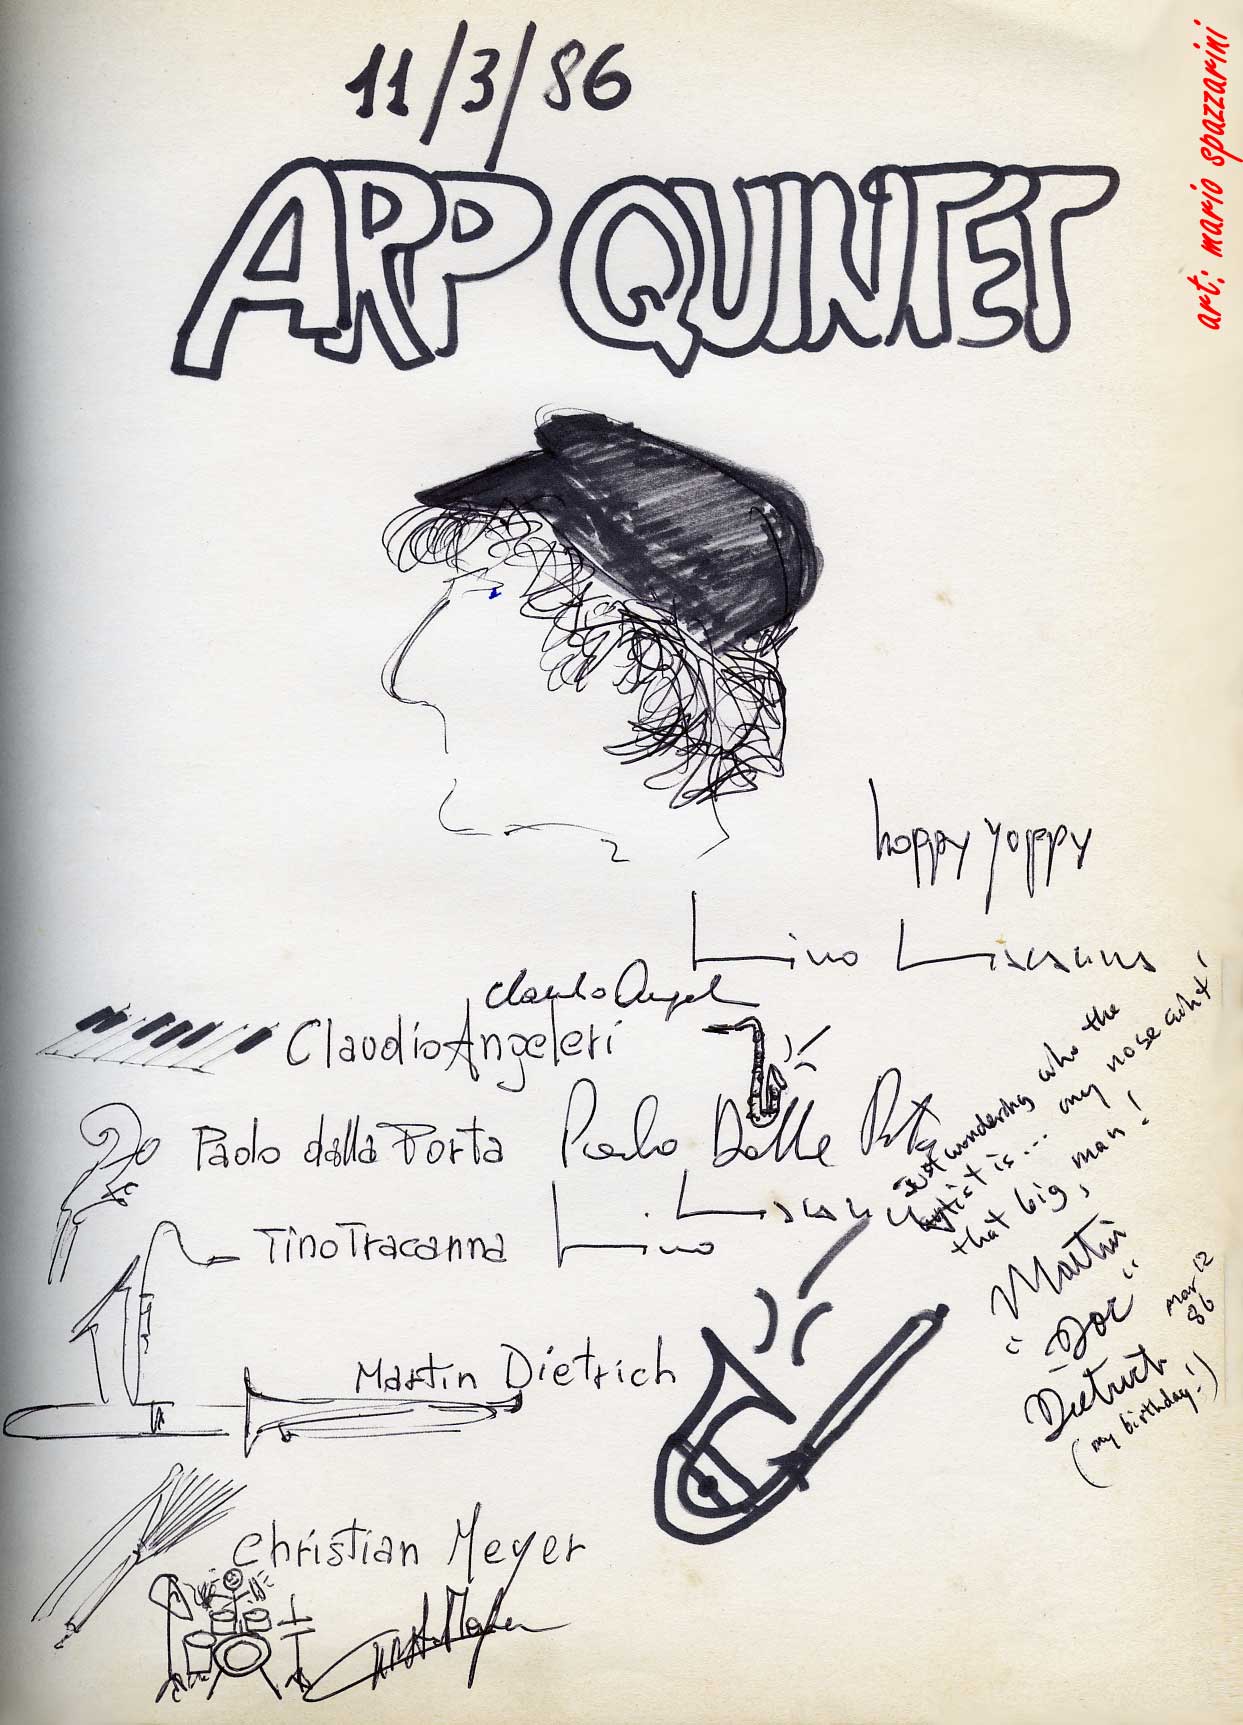 11/3/86
ARP QUINTET
art: mario spazzarini
hoppy yoppy
Claudio Angeleri
Paolo dalla Porta
Paolo Dalla Porta
Tino Tracanna
Lino
Martin Dietrich
Christian Meyer
Just wondering who the
artist is... my nose ain't
that big, man!
Martin
"Doc"
Dietrich
Mar 12
86
(my birthday!)